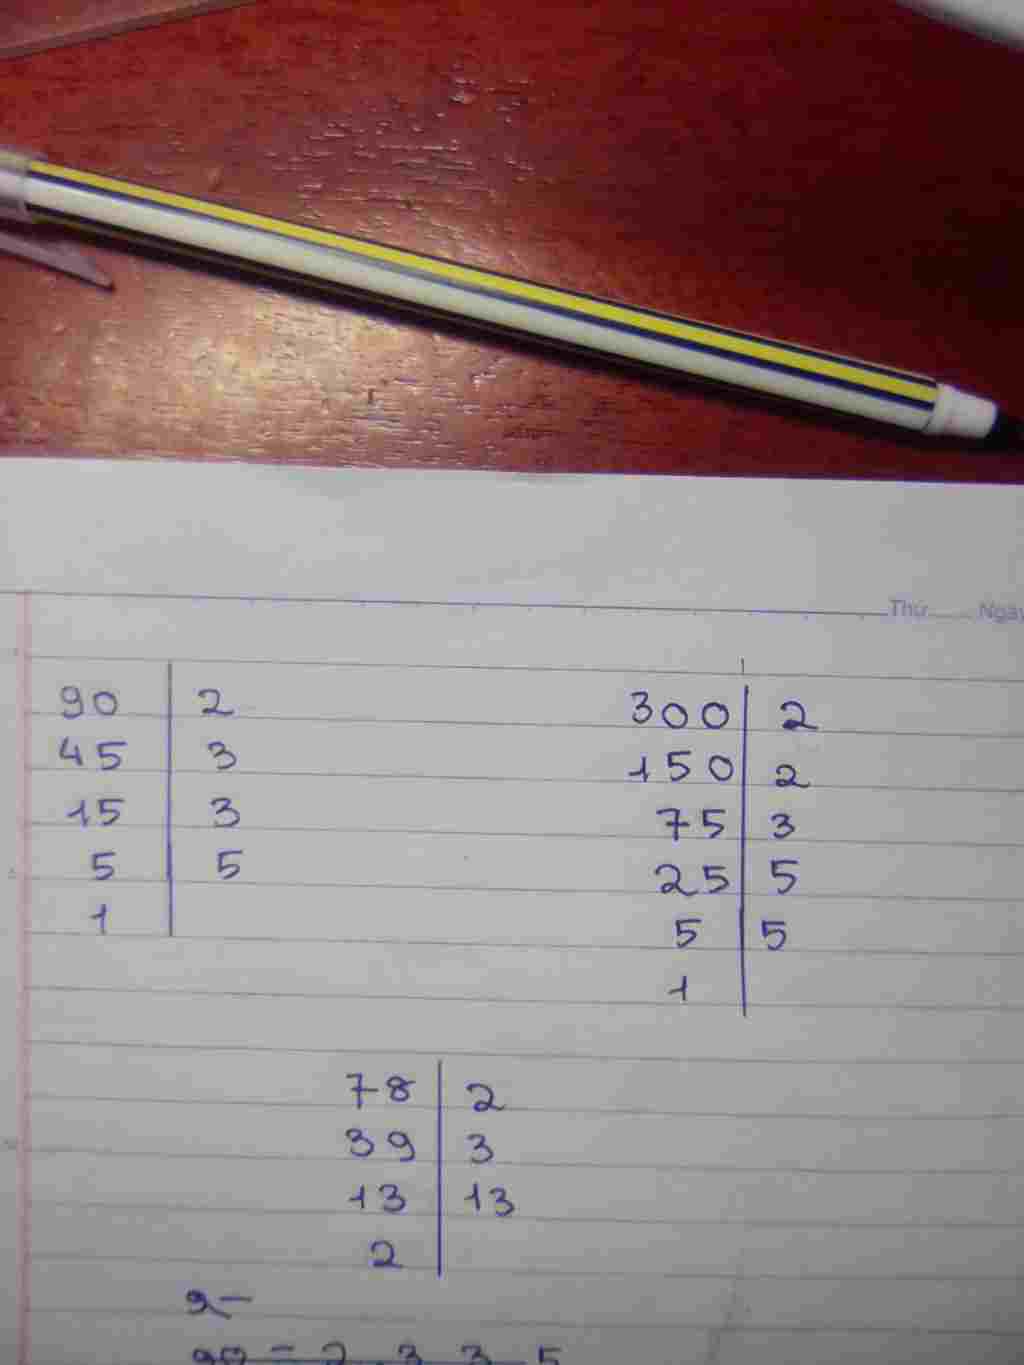 Thứ Ngày
90 | 2
45 | 3
15 | 3
5 | 5
1 |
300 | 2
150 | 2
75 | 3
25 | 5
5 | 5
1 |
78 | 2
39 | 3
13 | 13
2 |
90 = 2 . 3 . 3 . 5